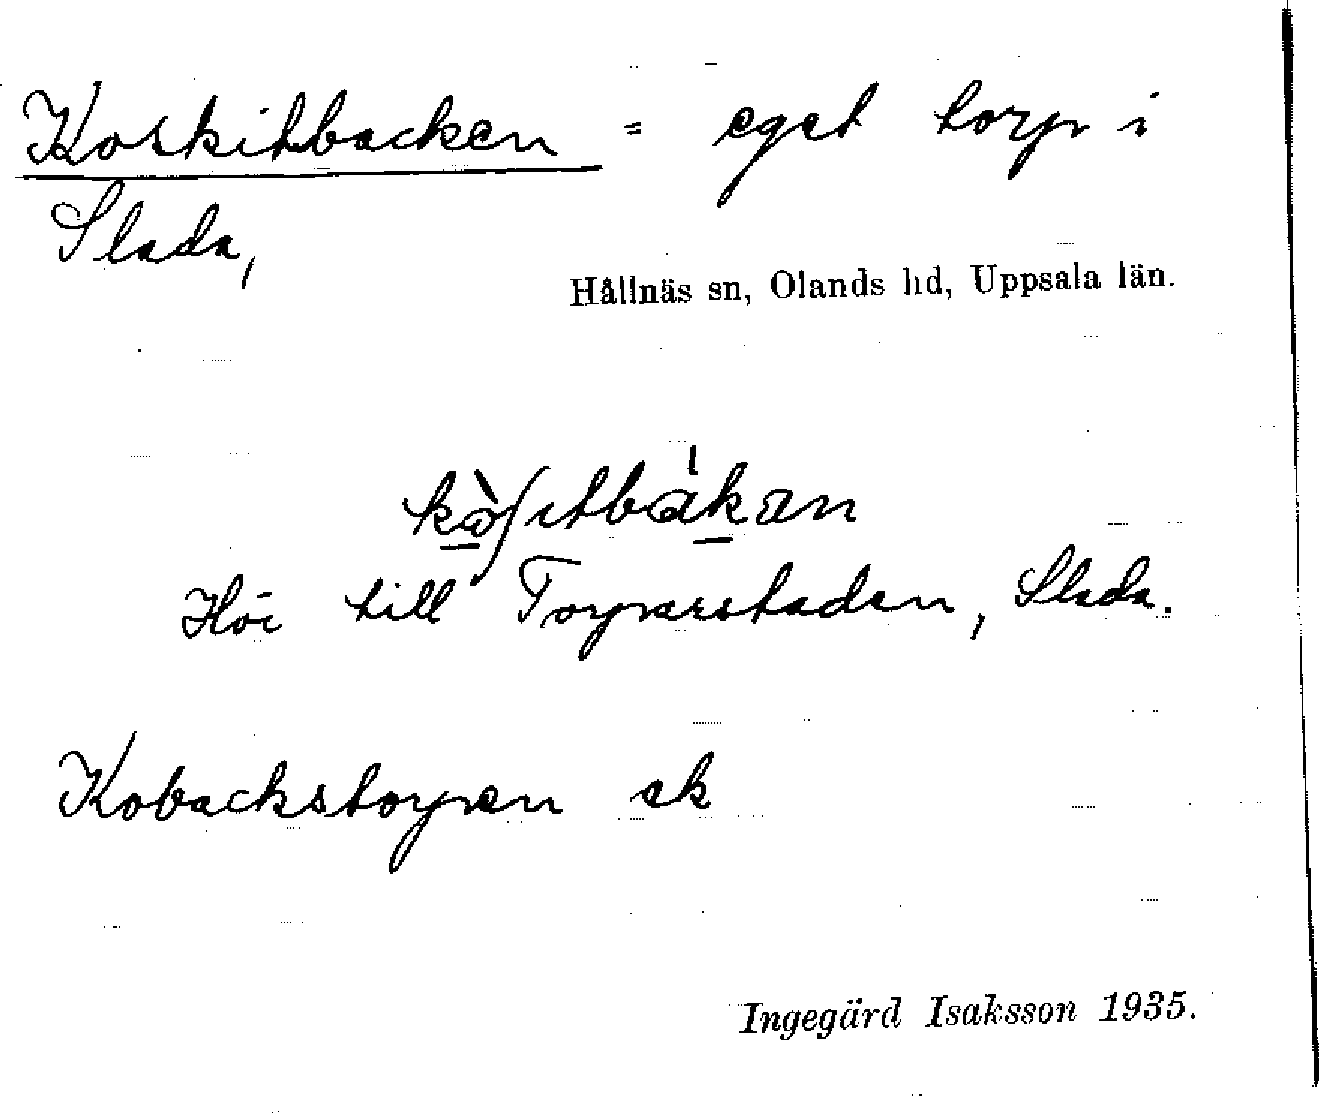 Koskitbacken = eget torp i
Slada,
Hållnäs sn, Olands hd, Uppsala län.
kòʃitbàkan
Hör till Torparstaden, Slada.
Kobackstorpen ek
Ingegärd Isaksson 1935.